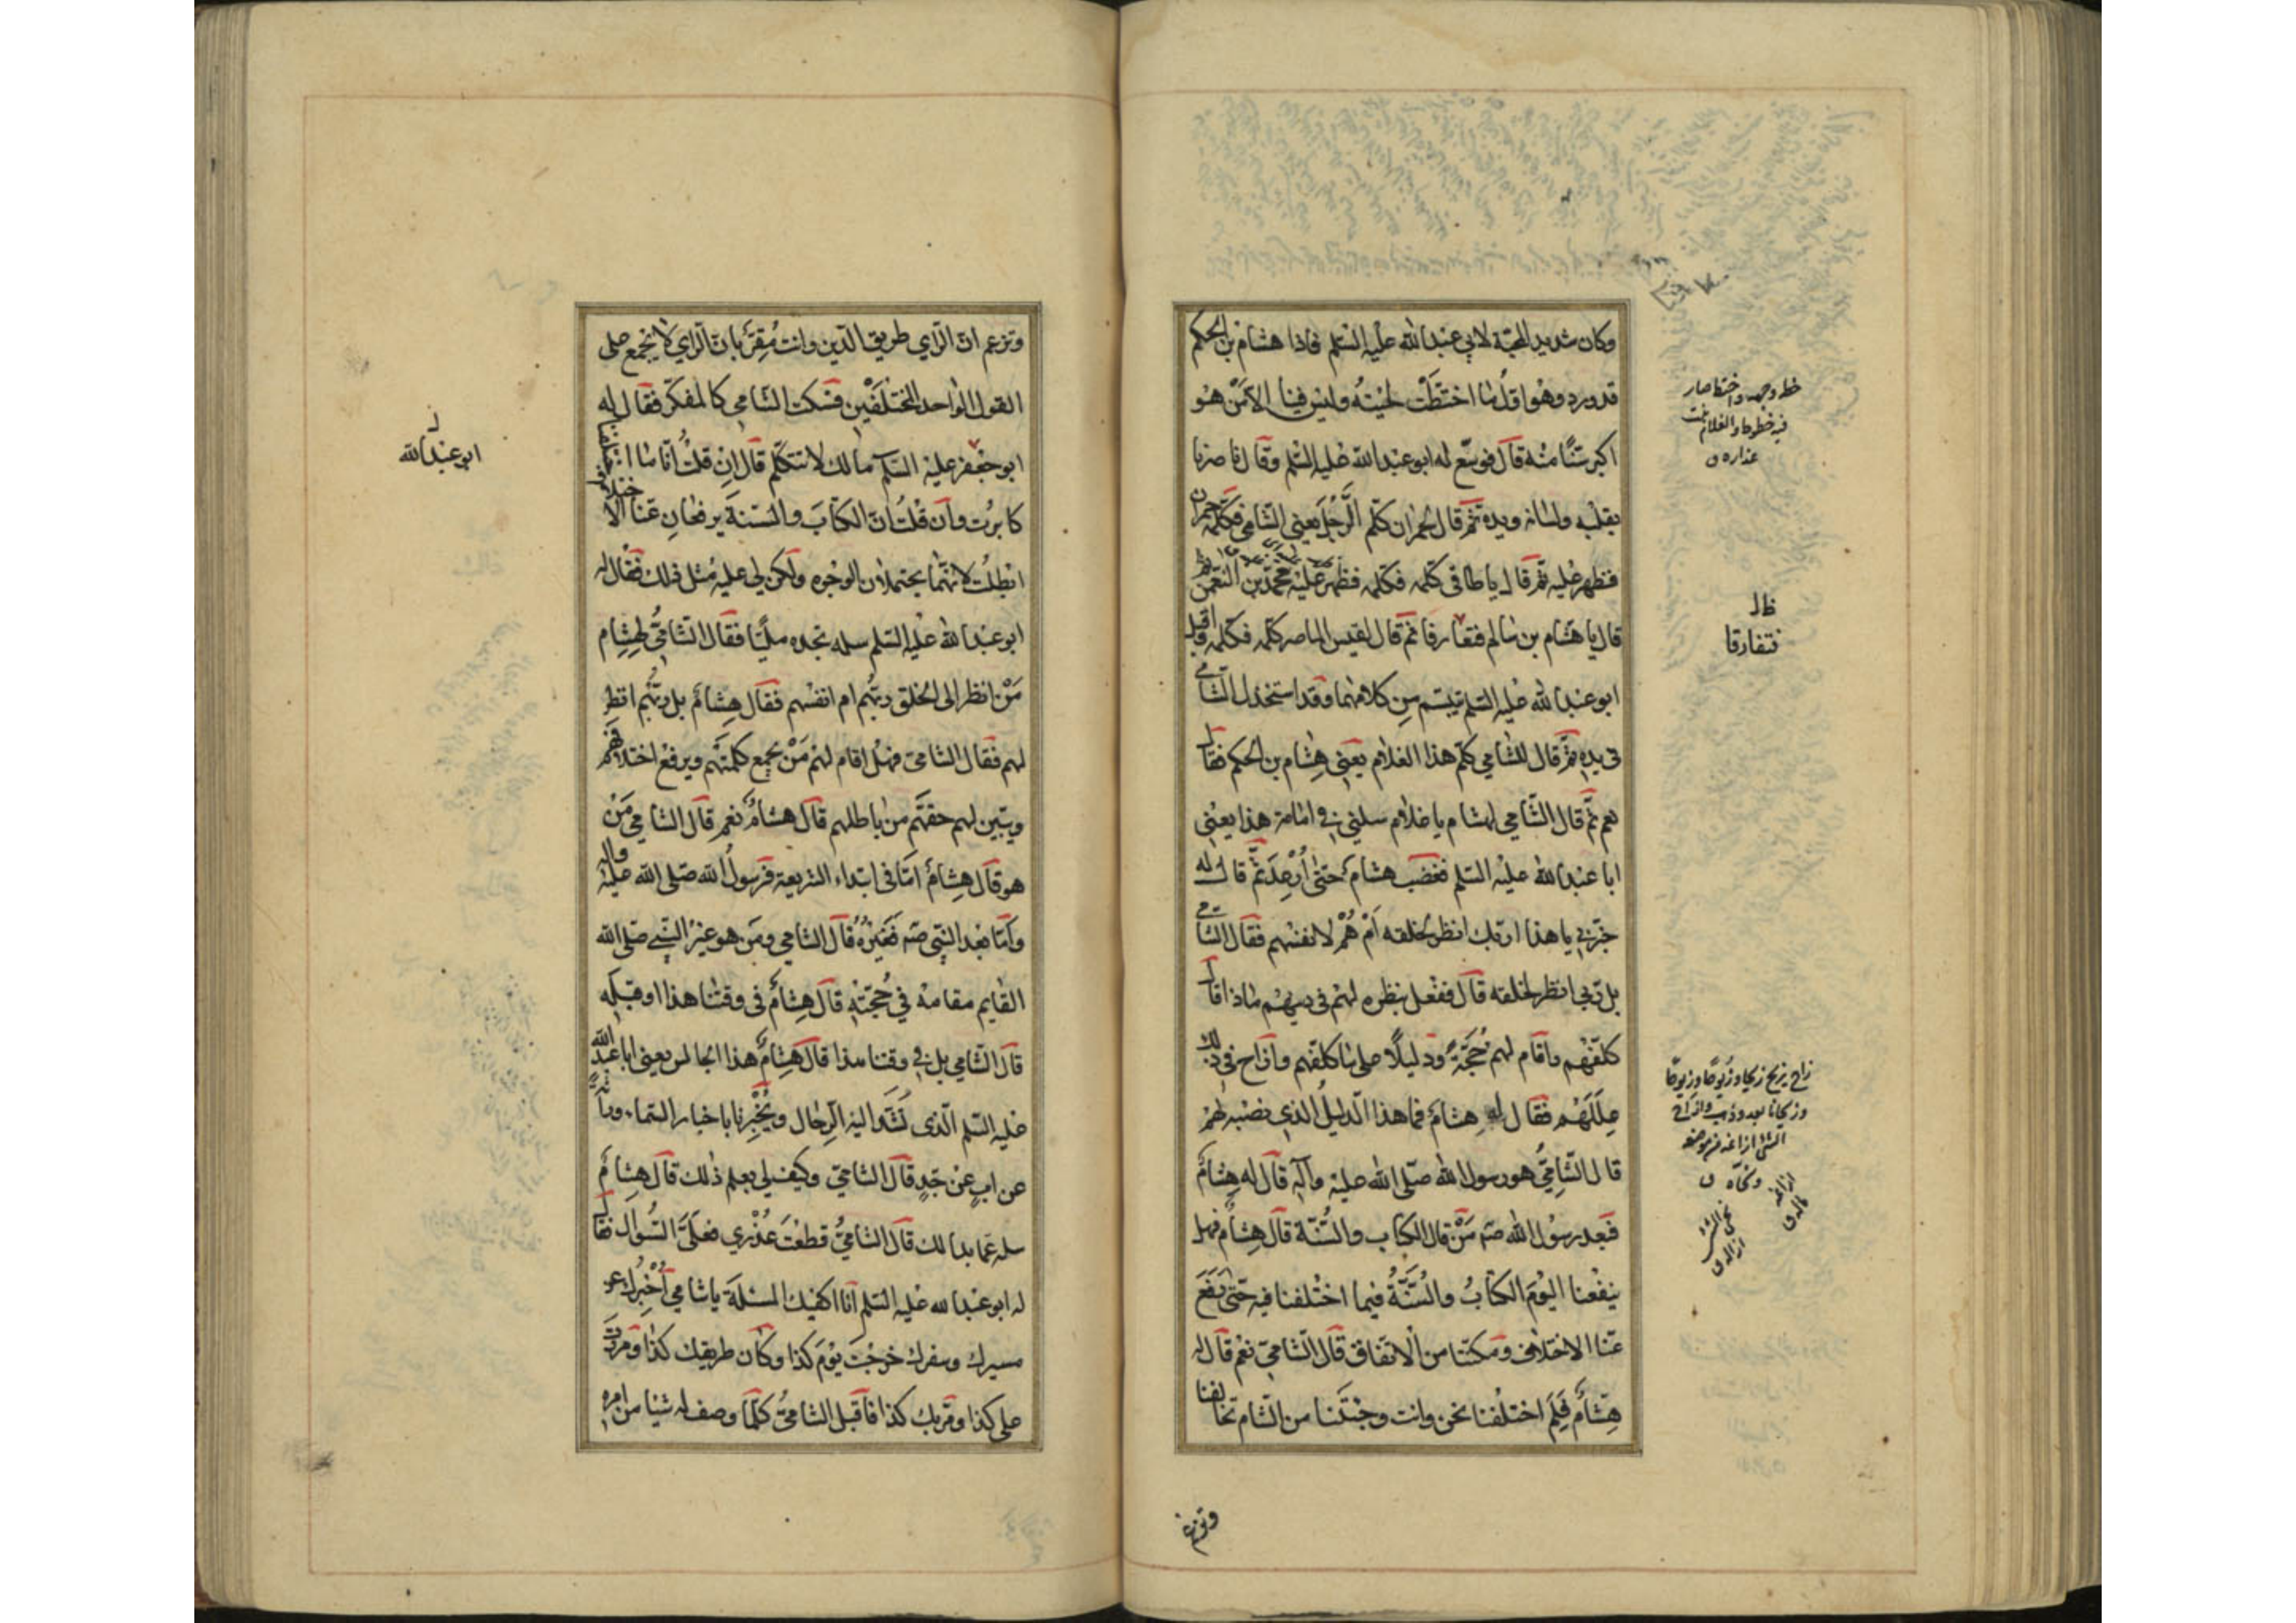 وكان شديد المحبّة لابي عبدالله عليه السّلم فاذا هشام بن الحكم
قد ورد وهو اوّل ما اختطّت لحيته وليس فينا الّا مَنْ هو
اكبر سنًّا منه قال فوسّع له ابو عبدالله عليه السّلم وقال ناصرنا
بقلبه ولسانه ويده ثمّ قال لحمران كلّم الرّجل يعني الشّامي فكلّمه حمران
فظهر عليه ثمّ قال يا طاقي كلّمه فكلّمه فظهر عليه محمّد بن النعمن ثم
قال يا هشام بن سالم فتعارفا ثمّ قال لقيس الماصر كلّمه فكلّمه فاقبل
ابو عبدالله عليه السّلم تبسّم من كلامهما وقد استخذل الشّامي
في يده ثمّ قال للشامي كلّم هذا الغلام يعني هِشام بن الحكم فقال
نعم ثمّ قال الشّامي لهشام يا غلام سلني في امامة هذا يعني
ابا عبدالله عليه السّلم فغضب هشام حتّى اُرْعِدَ ثمّ قال له
خبّرني يا هذا اربّك انظر لخلقه اَمْ هُمْ لانفسهم فقال الشّامي
بل ربّي انظر لخلقه قال ففعل بنظره لهم في دينهم ماذا قال
كلّفهم واقام لهم حُجّةً ودليلًا على ما كلّفهم وازاح في ذلك
عِلَلَهُم فقال له هشام فما هذا الدّليل الذي نصبه لهم
قال الشّاميّ هو رسول الله صلّى الله عليه وآله قال له هِشام
فبعد رسول الله صه مَنْ قال الكتاب والسّنّة قال هِشام فهل
ينفعنا اليوم الكتابُ والسُّنّةُ فيما اختلفنا فيه حتّى رفع
عنّا الاختلاف ومكّننا من الاتفاق قال الشّاميّ نعم قال له
هِشام فَلِمَ اختلفنا نحن وانت وجئتنا من الشام تخالفنا
وتزعم
خط وجهه واختط صار
فيه خطوط والغلام نبت
عذاره ق
ظ ل
فتفارقا
زاح يزيح زيحا وزيوحا وزيوحا
وزيحانا بعد وذهب وانزاح
الشئ ازاغه من موضعه
ونحّاه ق
وتزعم انّ الرّاي طريق الدّين وانت مُقِرّ بانّ الرّاي لا يجمع على
القول الواحد المختلفين فسكت الشّامي كالمفكّر فقال له
ابو جعفر عليه السّلم مالك لا تتكلّم قال ان قلتُ انّا ما اختلفنا
كابرت وان قلتُ انّ الكتابَ والسّنةَ يرفعان عنّا الا
ابطلت لانّهما يحتملان الوجوه ولكن لي عليه مثل ذلك فقال له
ابو عبدالله عليه السّلم سله تجده مليًّا فقال الشّاميّ لهِشام
مَنْ انظر الى الخلق ربّهم ام انفسهم فقال هشام بل ربّهم انظر
لهم فقال الشّامي فهل اقام لهم مَنْ يجمع كلمتهم ويرفع اختلافهم
ويبيّن لهم حقّهم من باطلهم قال هشام نعم قال الشّامي مَنْ
هو قال هِشام امّا في ابتداء الشريعة فرسول الله صلى الله عليه واله
وامّا بعد النّبي صه فغيره قال الشّامي ومَن هو غير النّبي صلى الله
القايم مقامه في حُجّته قال هِشام في وقتنا هذا او قبله
قال الشّامي بل في وقتنا هذا قال هِشام هذا الجالس يعني ابا عبدالله
عليه السّلم الّذي نَشُدّ اليه الرّحال ويُخْبِرنا باخبار السّماء وراثةً
عن ابٍ عن جدّ قال الشّاميّ وكيف لي بعلم ذلك قال هِشام
سله عمّا بدا لك قال الشّاميّ قطعْتَ عُذْري فعليّ السّؤال فقال
له ابو عبدالله عليه السّلم انا اكفيك المسئلة يا شامي اُخْبِرك عن
مسيرك وسفرك خرجْتَ يومَ كذا وكان طريقك كذا ومررت
على كذا ومرّ بك كذا فاقبل الشّاميّ كلّما وصف له شيئا من امره
ل
ابو عبدالله